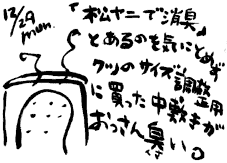 12/29
mon.
「松ヤニで消臭」
とあるのを気にとめず
クツのサイズ調整用
に買った中敷きが
おっさん臭い。
くさ